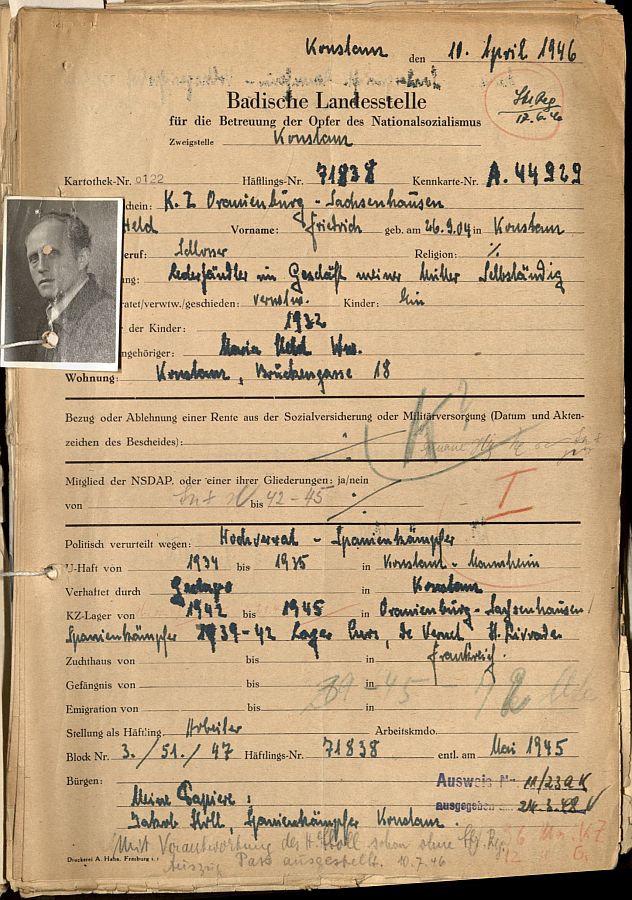 Konstanz den 10. April 1946
Badische Landesstelle
für die Betreuung der Opfer des Nationalsozialismus
Zweigstelle Konstanz
Kartothek-Nr. 0122 Häftlings-Nr. 71838 Kennkarte-Nr. A. 44929
chein: K. Z Oranienburg - Sachsenhausen
Held Vorname: Friedrich geb. am 26.9.04 in Konstanz
eruf: Schlosser Religion: %
ng: Lederhändler im Geschäft meiner Mutter Selbständig
ratet/verwtw./geschieden: verwtw. Kinder: Ein
der Kinder: 1932
ngehöriger: Maria Held Ww.
Wohnung: Konstanz, Brückengasse 18
Bezug oder Ablehnung einer Rente aus der Sozialversicherung oder Militärversorgung (Datum und Akten-
zeichen des Bescheides):
Mitglied der NSDAP. oder einer ihrer Gliederungen: ja/nein
von bis 42-45
I
Politisch verurteilt wegen: Hochverrat - Spanienkämpfer
U-Haft von 1934 bis 1935 in Konstanz - Mannheim
Verhaftet durch Gestapo in Konstanz
KZ-Lager von 1942 bis 1945 in Oranienburg - Sachsenhausen
Spanienkämpfer 1939-42 Lager Gurs, de Vernet
Zuchthaus von bis in Frankreich.
Gefängnis von bis in
Emigration von bis in
Stellung als Häftling: Arbeiter Arbeitskmdo.
Block Nr. 3./51./47 Häftlings-Nr. 71838 entl. am Mai 1945
Bürgen: Ausweis Nr. 11/239K
Meine Papiere: ausgegeben 24.3.48
Jakob Stoll, Spanienkämpfer Konstanz.
Mit Verantwortung des H. Stoll schon ohne
Auszug Pass ausgestellt. 10.7.46
Druckerei A. Hahn, Freiburg i. :